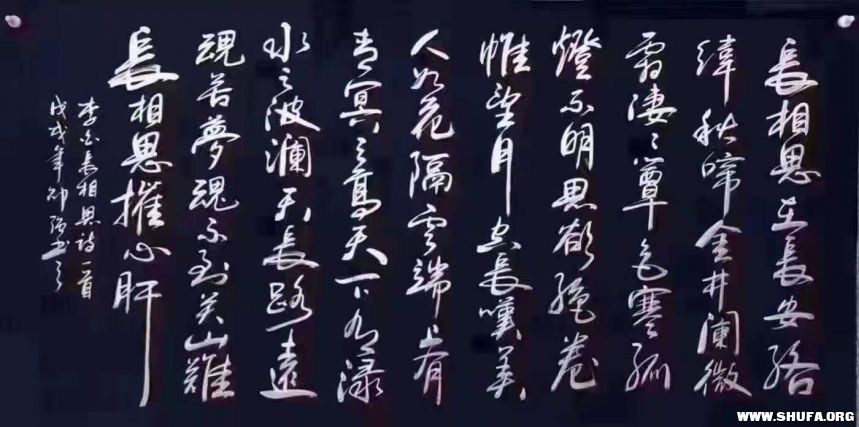 長相思在長安絡
緯秋啼金井闌微
霜淒々簟色寒孤
燈不明思欲絕卷
帷望月空長嘆美
人如花隔雲端上有
青冥之高天下有淥
水之波瀾天長路遠
魂苦夢魂不到关山難
長相思摧心肝
李白長相思詩一首
戊戌年书之
WWW.SHUFA.ORG